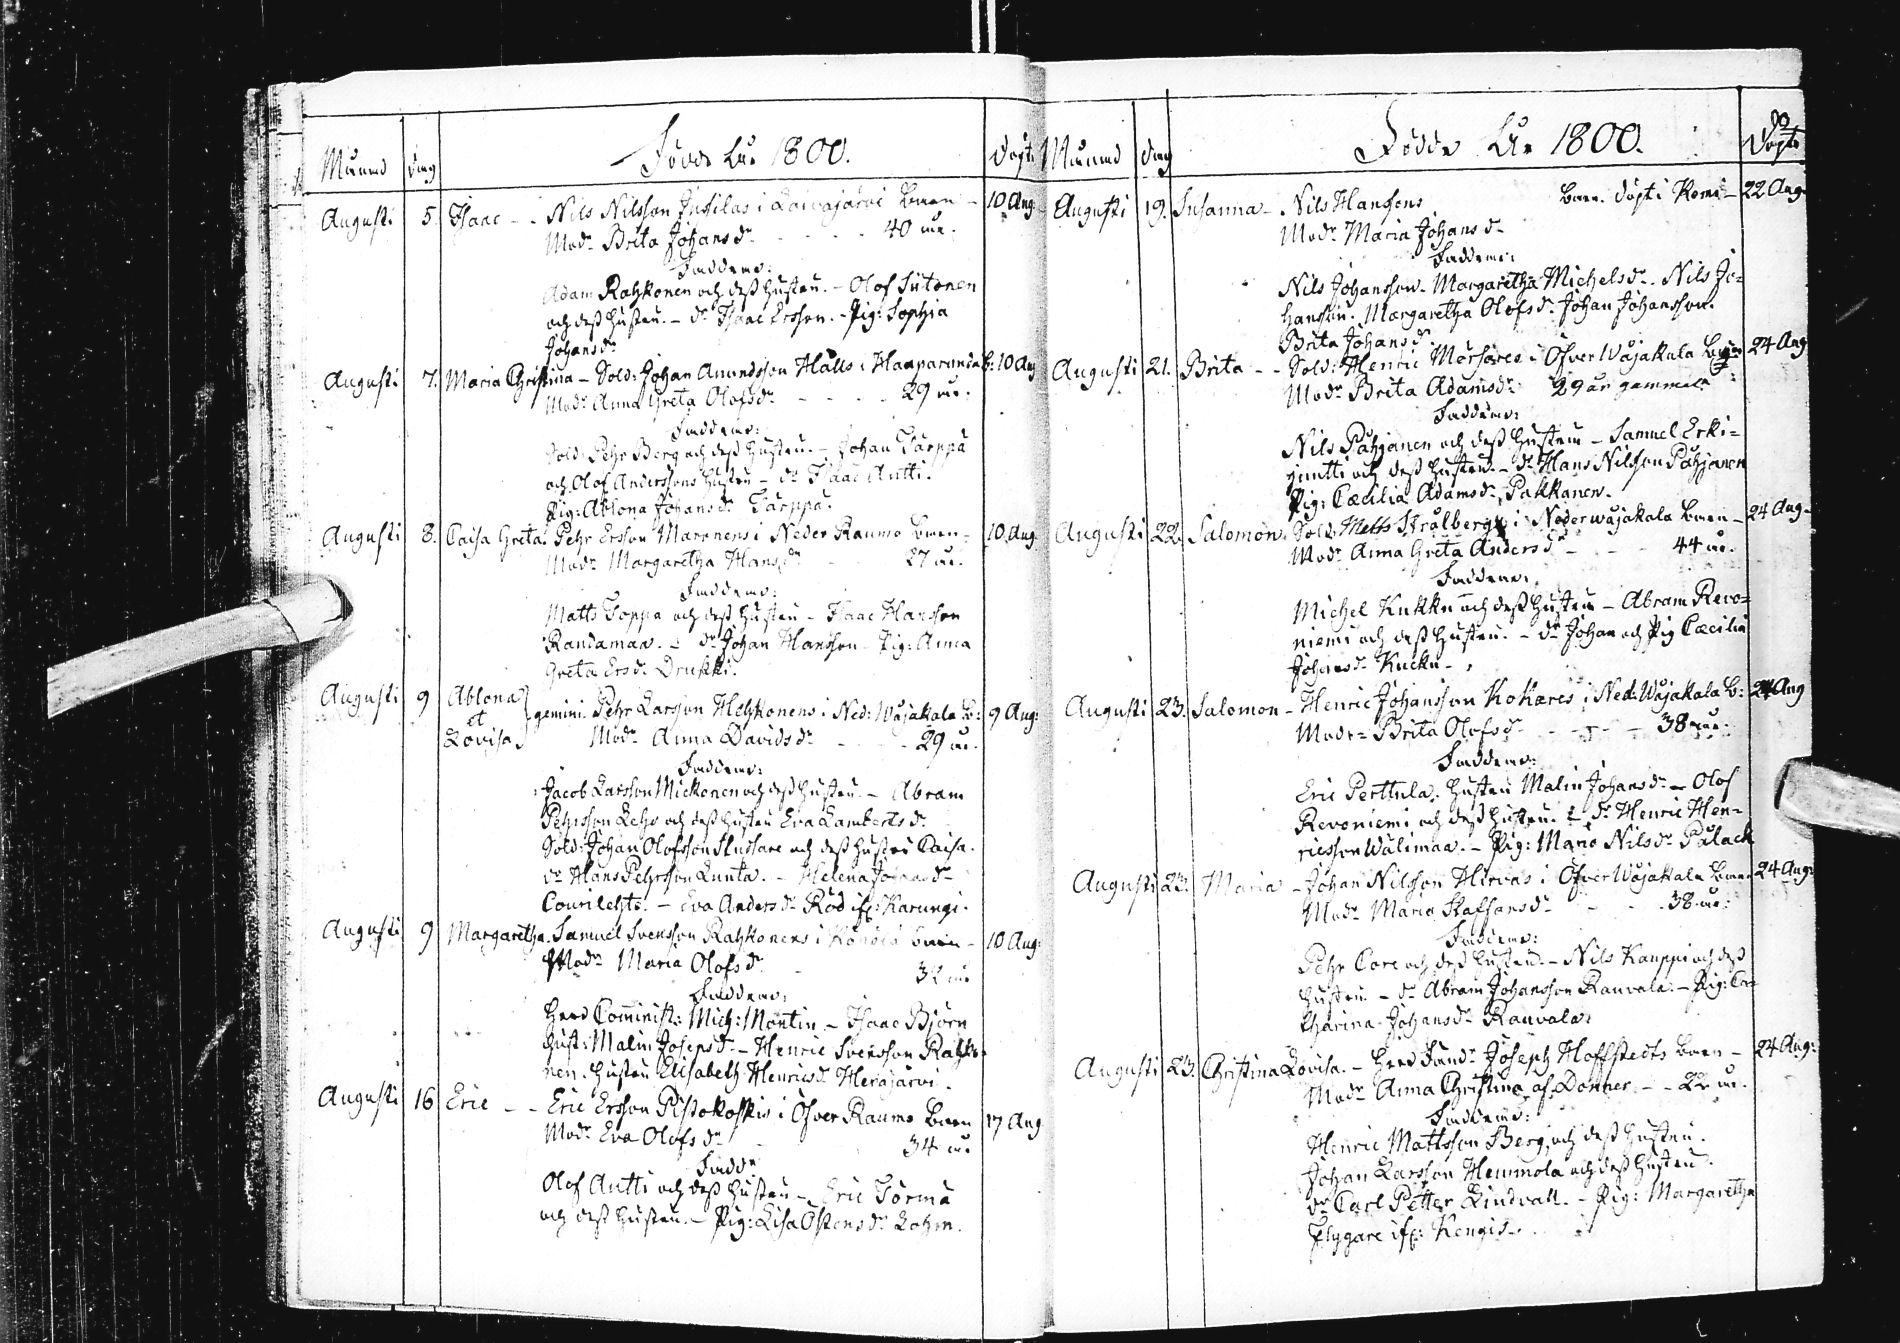 Månad dag Födde År 1800. Döpte
Augusti 5. Isaac - - Nils Nilsson i barn - 10 Aug:
Modr Brita Johansdr - - - - 40 år.
Faddrar:
Adam Rahkonen och dess hustru. - Olof Siitonen
och dess hustru. - dr Isaac Ersson. - Pig: Sophia
Johansdr
Augusti 7. Maria Christina - Sold: Johan Amundsson Hälls i Haaparanda b: 10 Aug
Modr Anna Greta Olofsdr - - - - 29 år.
Faddrar:
Sold: Pehr Berg och dess hustru. - Johan Tärppä
och Olof Anderssons hustru - dr Isaac Antti.
Pig: Ablona Johansdr Tärppä.
Augusti 8. Caisa Greta. Pehr Ersson Maronens i Neder Raumo barn - 10 Aug
Modr Margaretha Hansdr - - 27 år.
Faddrar:
Matts Toppa och dess hustru - Isaac Hansson
Randamaa. - dr Johan Hansson - Pig: Anna
Greta Ersdr Drukki.
Augusti 9 Ablona et Lovisa gemini. Pehr Larsson Hehkonens i Ned: Wäjakala b: 9 Aug:
Modr Anna Davidsdr - - - 29 år.
Faddrar:
Jacob Larsson Mickonen och dess hustru. - Abram
Pehrsson Lehr och dess hustru Eva Lambertsdr
Sold: Johan Olofsson Slussare och dess hustru Caisa.
dr Hans Pehrsson Lunta. - Helena Johansdr
- Eva Andersdr Röd if: Karungi.
Augusti 9 Margaretha. Samuel Svensson Rahkonens i barn - 10 Aug:
Modr Maria Olofsdr - 32 år
Faddrar:
Herr Comminist: Mich: Montin - Isaac Björn
hust: Malin Josepsdr - Henric Svensson Rahko-
nen. hustru Elisabeth Henricsdr Herajärvi.
Augusti 16 Eric - - Eric Ersson i Öfver Raumo barn 17 Aug
Modr Eva Olofsdr - 34 år
Faddr
Olof Antti och dess hustru - Eric Törmä
och dess hustru. - Pig: Lisa Ostensdr
Månad dag Födde År 1800. Döpte
Augusti 19. Susanna - Nils Hanssons barn. döpt i Kemi - 22 Aug.
Modr Maria Johansdr
Faddrar:
Nils Johansson. Margaretha Michelsdr. Nils Jo-
hansson. Margaretha Olofsdr Johan Johansson.
Brita Johansdr
Augusti 21. Brita - - Sold: Henric Mörsares i Öfver Wäjakala barn 24 Aug
Modr Brita Adamsdr 29 år gammal
Faddrar:
Nils Pähjänen och dess hustru - Samuel Erki-
jemtti och dess hustru. - dr Hans Nilsson Pahjanen
Pig: Cæcilia Adamsdr Pakkanen.
Augusti 22. Salomon. Sold: Matts Strålbergs i Neder wäjakala barn - 24 Aug.
Modr Anna Greta Andersdr - - - 44 år.
Faddrar:
Michel Kukku och dess hustru - Abram Revo-
niemi och dess hustru. - dr Johan och Pig Cæcilia
Johansdr Kucku.
Augusti 23. Salomon - Henric Johansson Kokares i Ned: Wäjakala b: 24 Aug
Modr Brita Olofsdr - - - 38 år.
Faddrar:
Eric Perttula. hustru Malin Johansdr - Olof
Revoniemi och dess hustru. - dr Henric Hen-
ricsson Wälimaa. - Pig: Maria Nilsdr Palack
Augusti 23. Maria - Johan Nilsson Hirvas i Öfver Wäjakala barn 24 Aug:
Modr Maria Staffansdr - - - 38 år.
Faddrar:
Pehr Core och dess hustru. - Nils Kauppi och dess
hustru. - dr Abram Johansson Rauvala. - Pig: Ca-
tharina Johansdr Rauvala.
Augusti 23. Christina Lovisa. - Herr Joseph Hoffstedts barn - 24 Aug:
Modr Anna Christina af Donner. - - 22 år.
Faddrar:
Henric Mattsson Berg och dess hustru.
Johan Larsson Hemmola och dess hustru.
dr Carl Petter Lindvall. - Pig: Margaretha
Flygare if: Kengis.